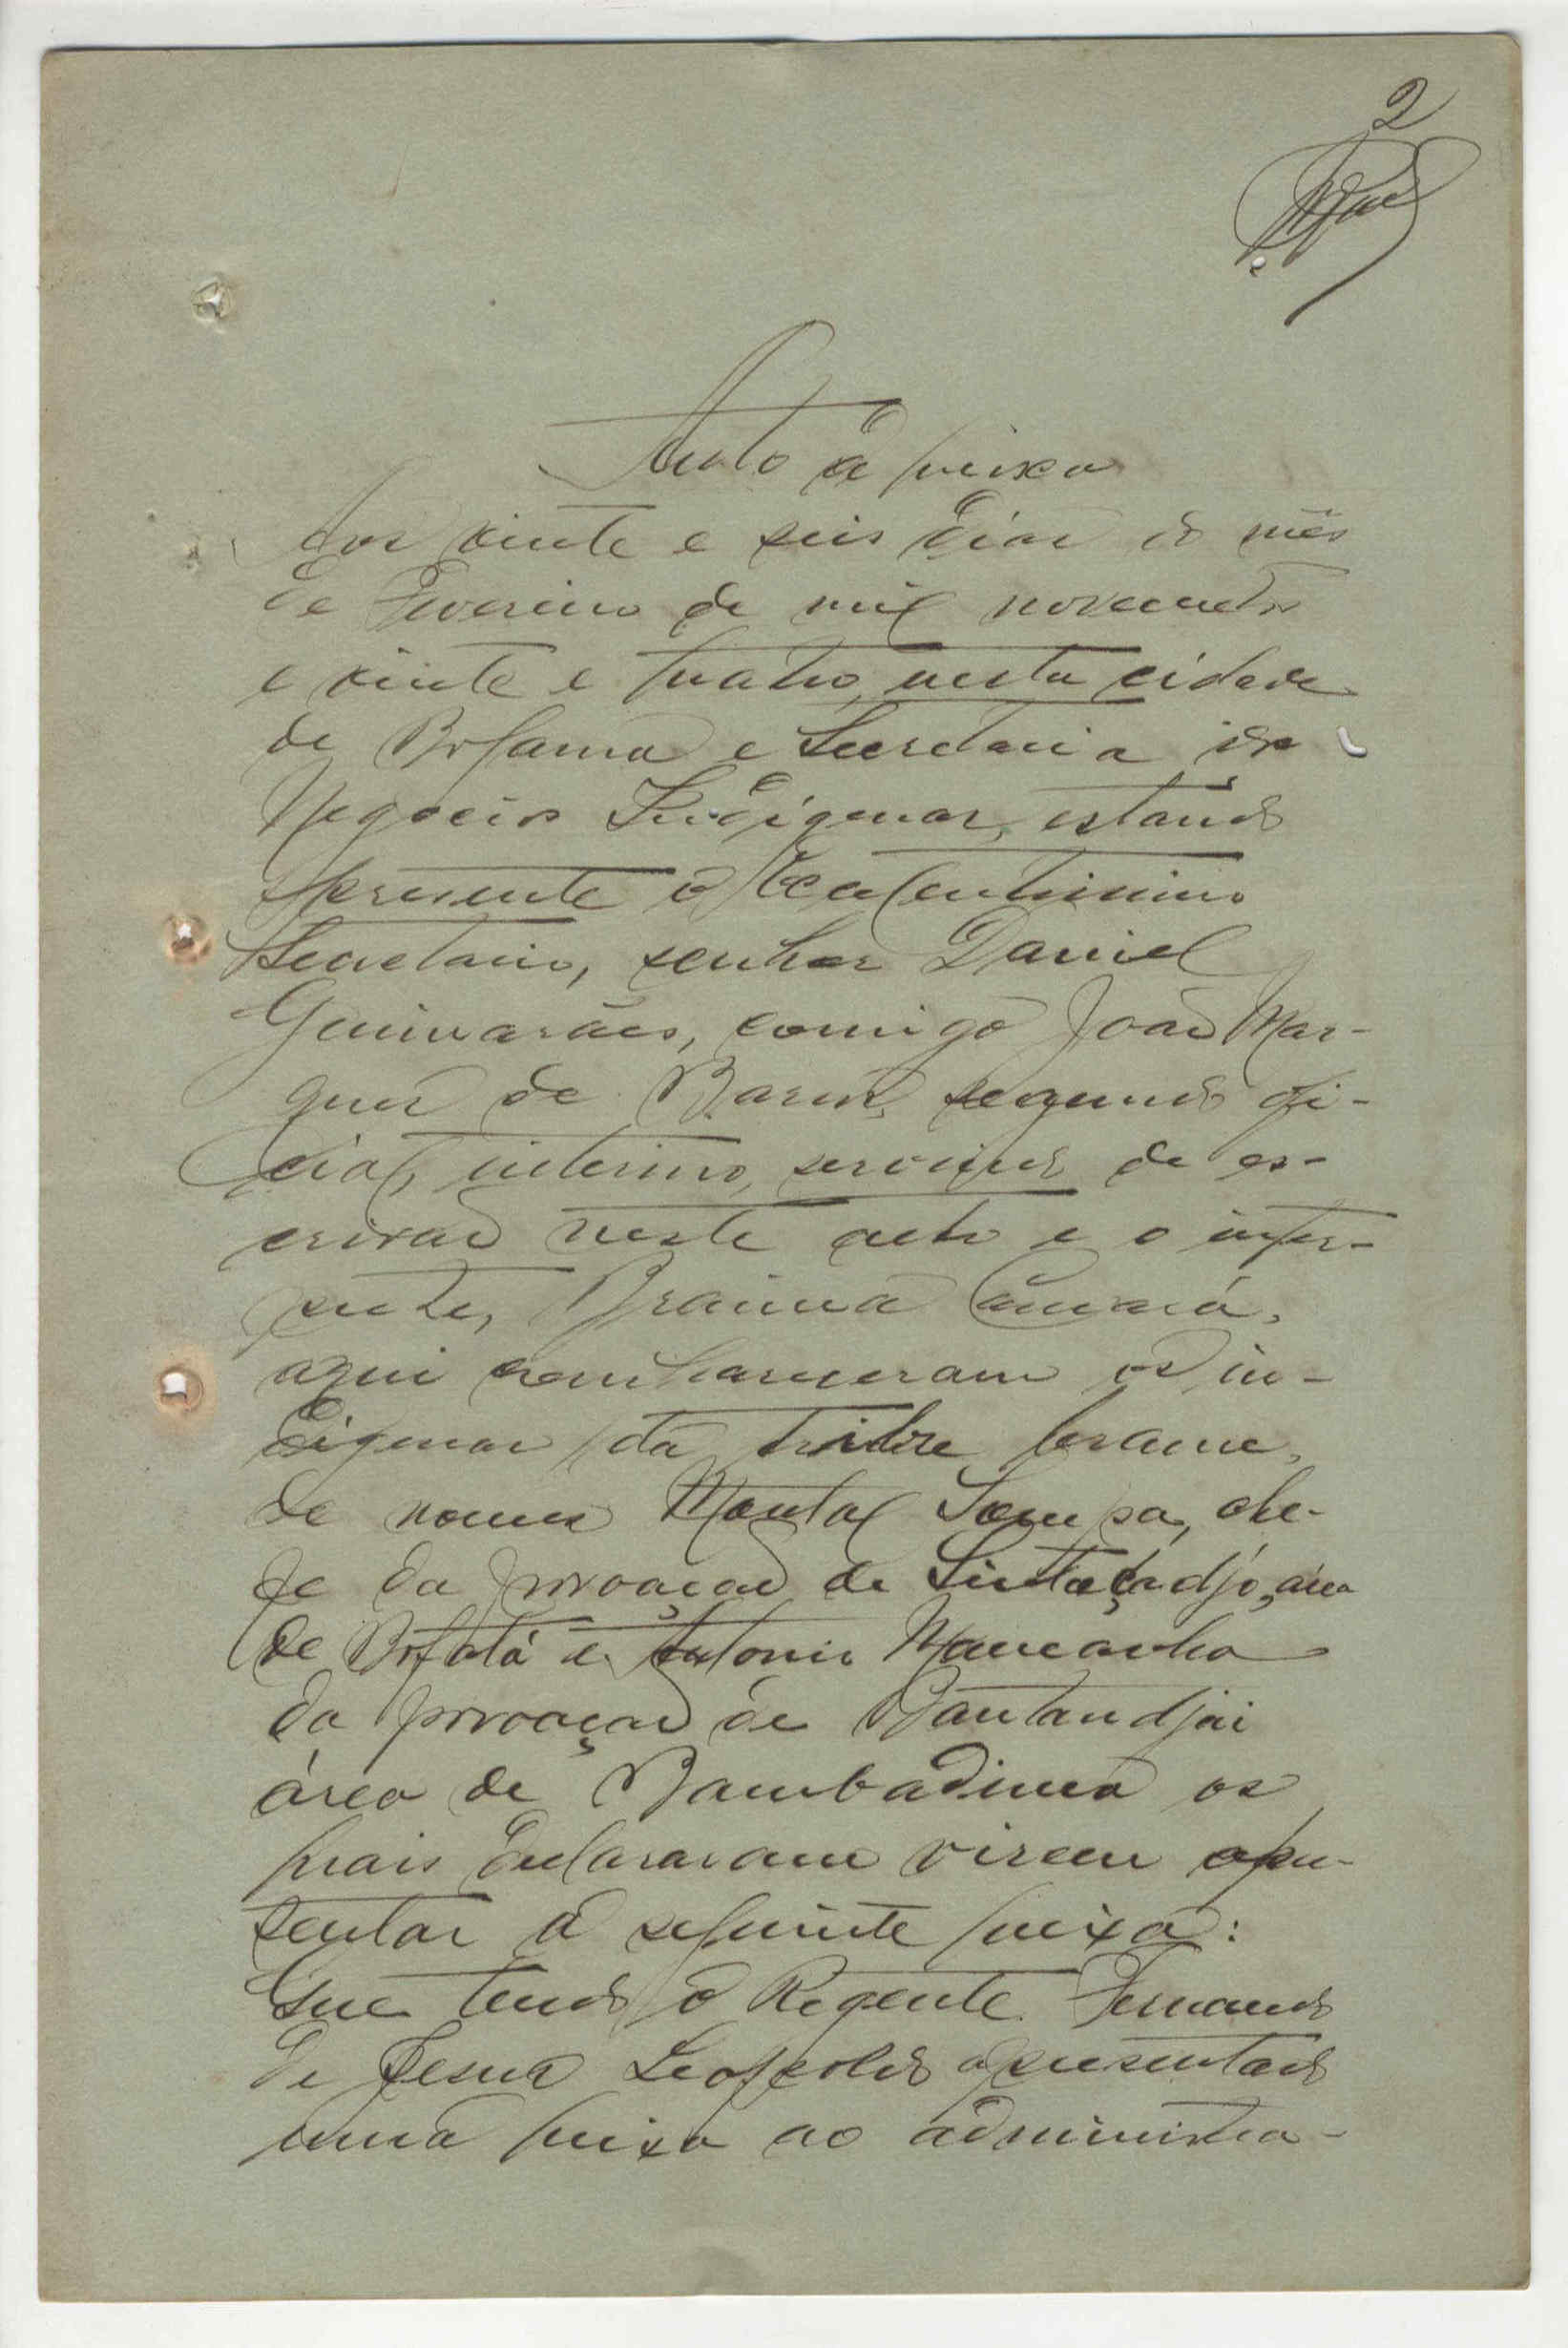 2
Auto de queixa
Aos vinte e seis dias do mês
de Fevereiro de mil novecentos
e vinte e quatro, nesta cidade
de Bolama e Secretaria dos
Negocios Indigenas, estando
presente o Excelentissimo
Secretario, senhor Daniel
Guimarães, comigo João Mar-
ques de Barros, segundo ofi-
cial, interino, servindo de es-
crivão neste acto e o inter-
prete, Braima Camará,
aqui compareceram os in-
digenas da tribu brame,
de nomes Mental Sampa, che-
fe da povoação de, área
de Bafatá e Antonio Mancanha
da povoação de Bantandjai
área de Bambadinca os
quais declararam virem apre-
sentar a seguinte queixa:
Que tendo o Regente Fernando
de Jesus Leopoldo apresentado
uma queixa ao administra-